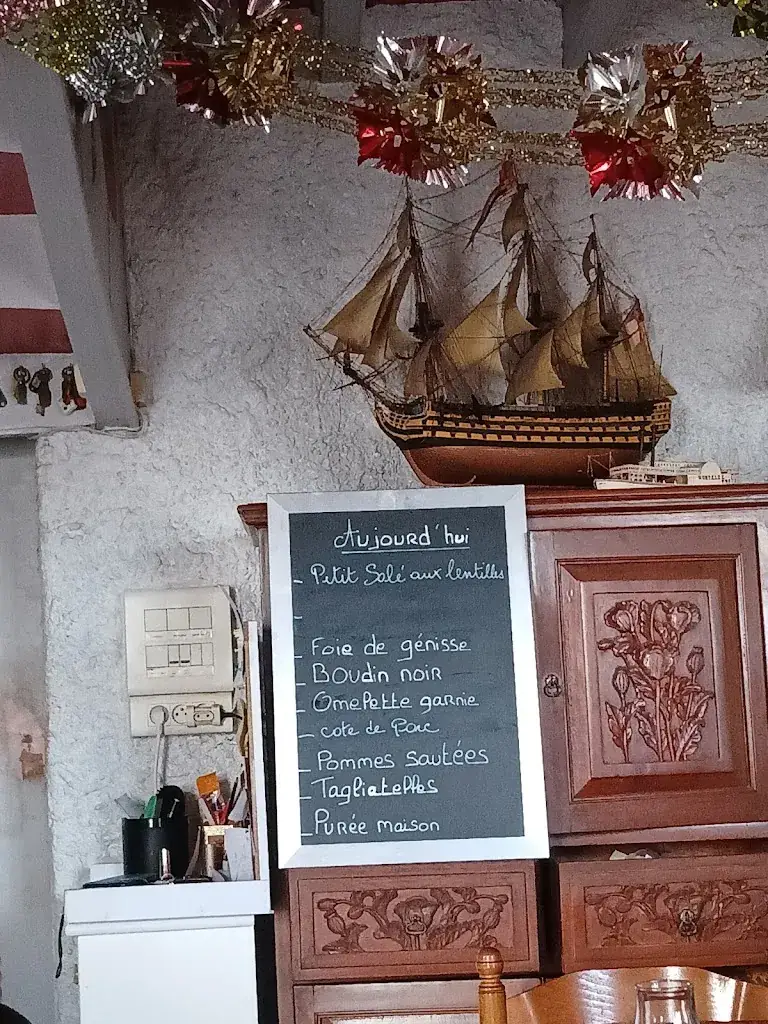 Aujourd'hui
- Petit Salé aux lentilles
-
- Foie de génisse
- Boudin noir
- Omelette garnie
- cote de Porc
- Pommes sautées
- Tagliatelles
- Purée maison